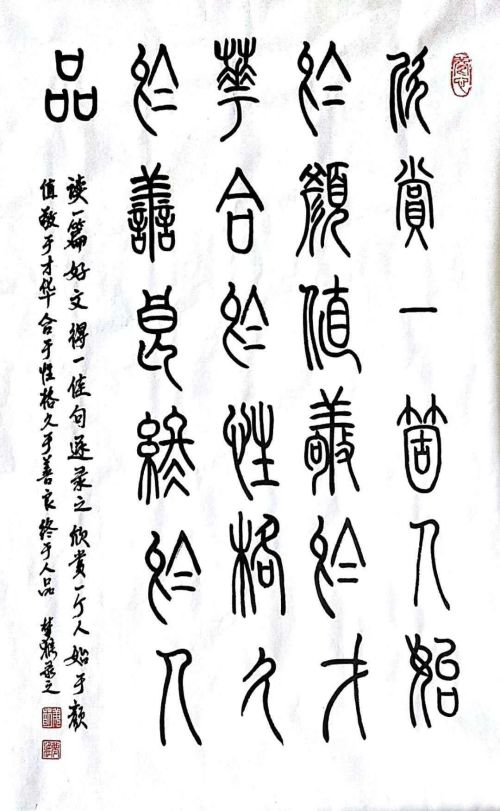 欣賞一箇人始
於顏值敬於才
華合於性格久
於譱良終於人
品
读一篇好文得一佳句遂录之欣赏一个人始于颜
值敬于才华合于性格久于善良终于人品 录之